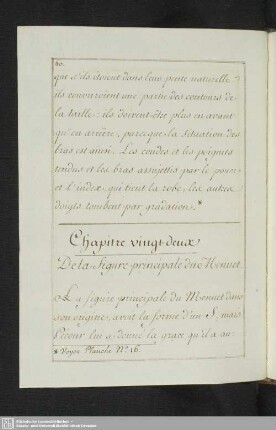 60.
que s'ils étoient dans leur pente naturelle
ils couvriroient une partie des contours de
la taille: ils doivent être plus en avant
qu'en arrière, parce que la situation des
bras est ainsi. Les coudes et les poignets
tendus et les bras assujettis par le pouce
et l'index, qui tient la robe, les autres
doigts tombent par gradation.*
Chapitre vingt-deux
De la figure principale du Menuet.
La figure principale du Menuet dans
son origine, avoit la forme d'un S. mais
Pécour lui a donné la grace qu'il a au-
* Voyez Planche N° 16.